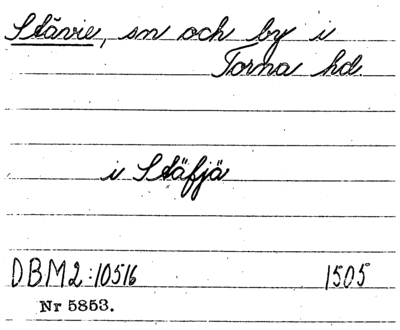 Stävie, sn och by i
Torna hd
i Stäfjä
DBM2:10516 1505
Nr 5853.